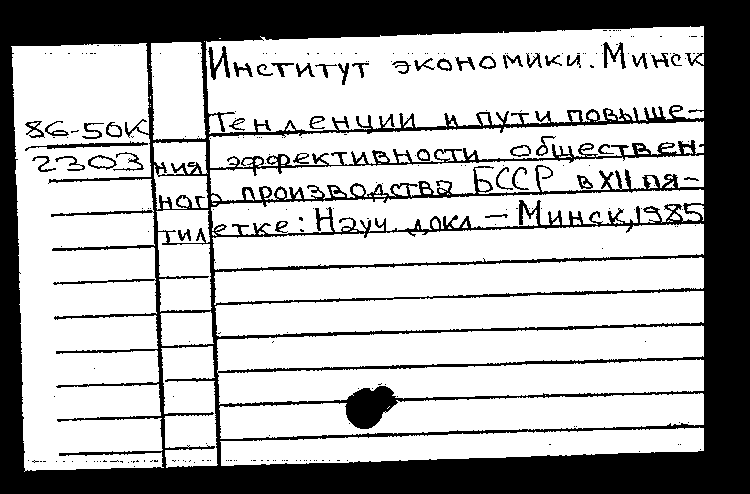 Институт экономики. Минск
86-50К
2303
Тенденции и пути повыше-
ния эффективности обществен-
ного производства БССР в XII пя-
тилетке: Науч. докл. – Минск, 1985